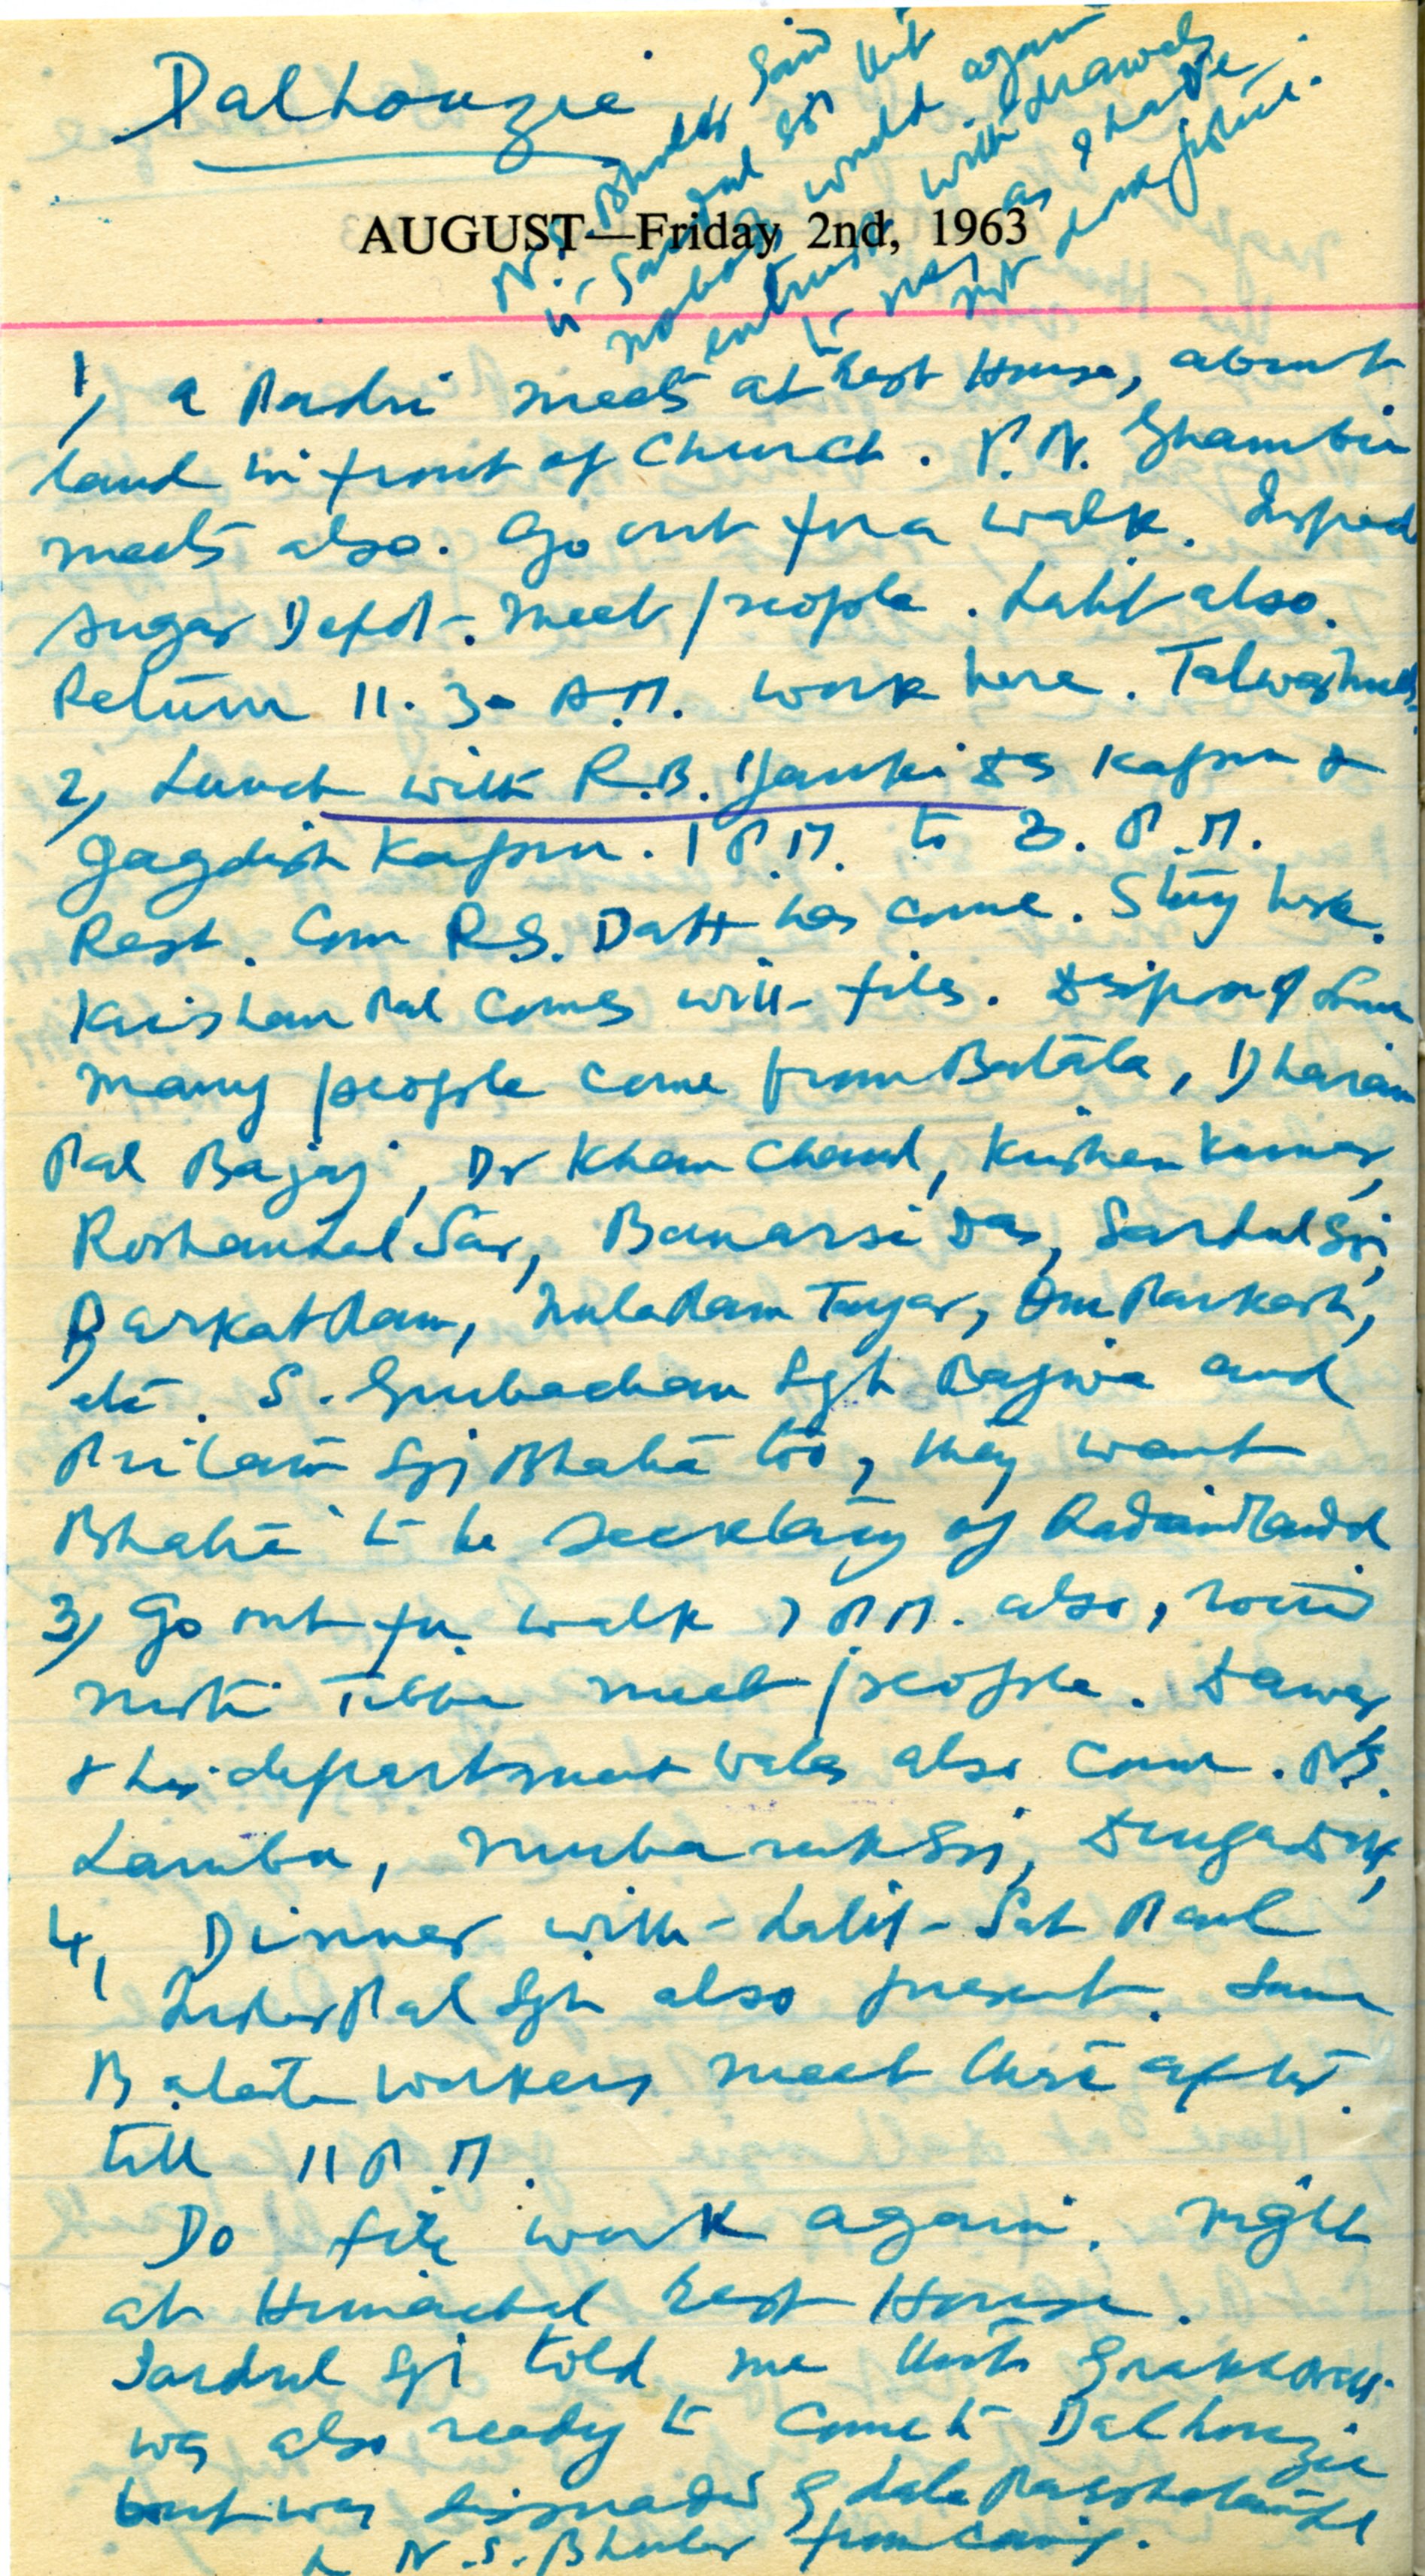 Dalhouzie
N.S. Bhuller said
to Sardul Sgj that
nobody would again
entrust withdrawals
to me, as I have
not done justice.
AUGUST—Friday 2nd, 1963
1) a Padri meets at Rest House, about
land in front of Church. P.N. Ghambir
meets also. Go out for a walk. Inspect
Sugar Depot. Meet people. Lalit also.
Return 11.30 A.M. work here. Talwar meets.
2) Lunch with R.B. Janki Das Kapur &
Jagdish Kapur. 1 P.M. to 3. P.M.
Rest. Com R.S. Datt has come. Stay here.
Krishan Pal comes with files. Dispose of Some
many people come from Batala, Dharam
Pal Bajaj, Dr Khem Chand, Krishen Kumar,
Roshan Lal Sar, Banarsi Das, Sardul Sgj,
Barkat Ram, Mula Ram Tuyar, Om Parkash,
etc. S. Gurbachan Sgh Bajwa and
Pritam Sgj Bhatia too, they want
Bhatia to be Secretary of
3) Go out for walk 7 P.M. also, round
Moti Tibba meet people. Dawar
& his department walas also come. N.S.
Lamba, Mubarak Sgj, Durga Datt,
4, Dinner with Lalit - Sat Paul
Inder Pal Sgh also present. Some
Batala workers meet there after
till 11 P.M.
Do file work again. Night
at Himachal Rest House.
Sardul Sgj told me that
was also ready to come to Dalhouzie
but was dissuaded by Lala
& N.S. Bhuller from coming.